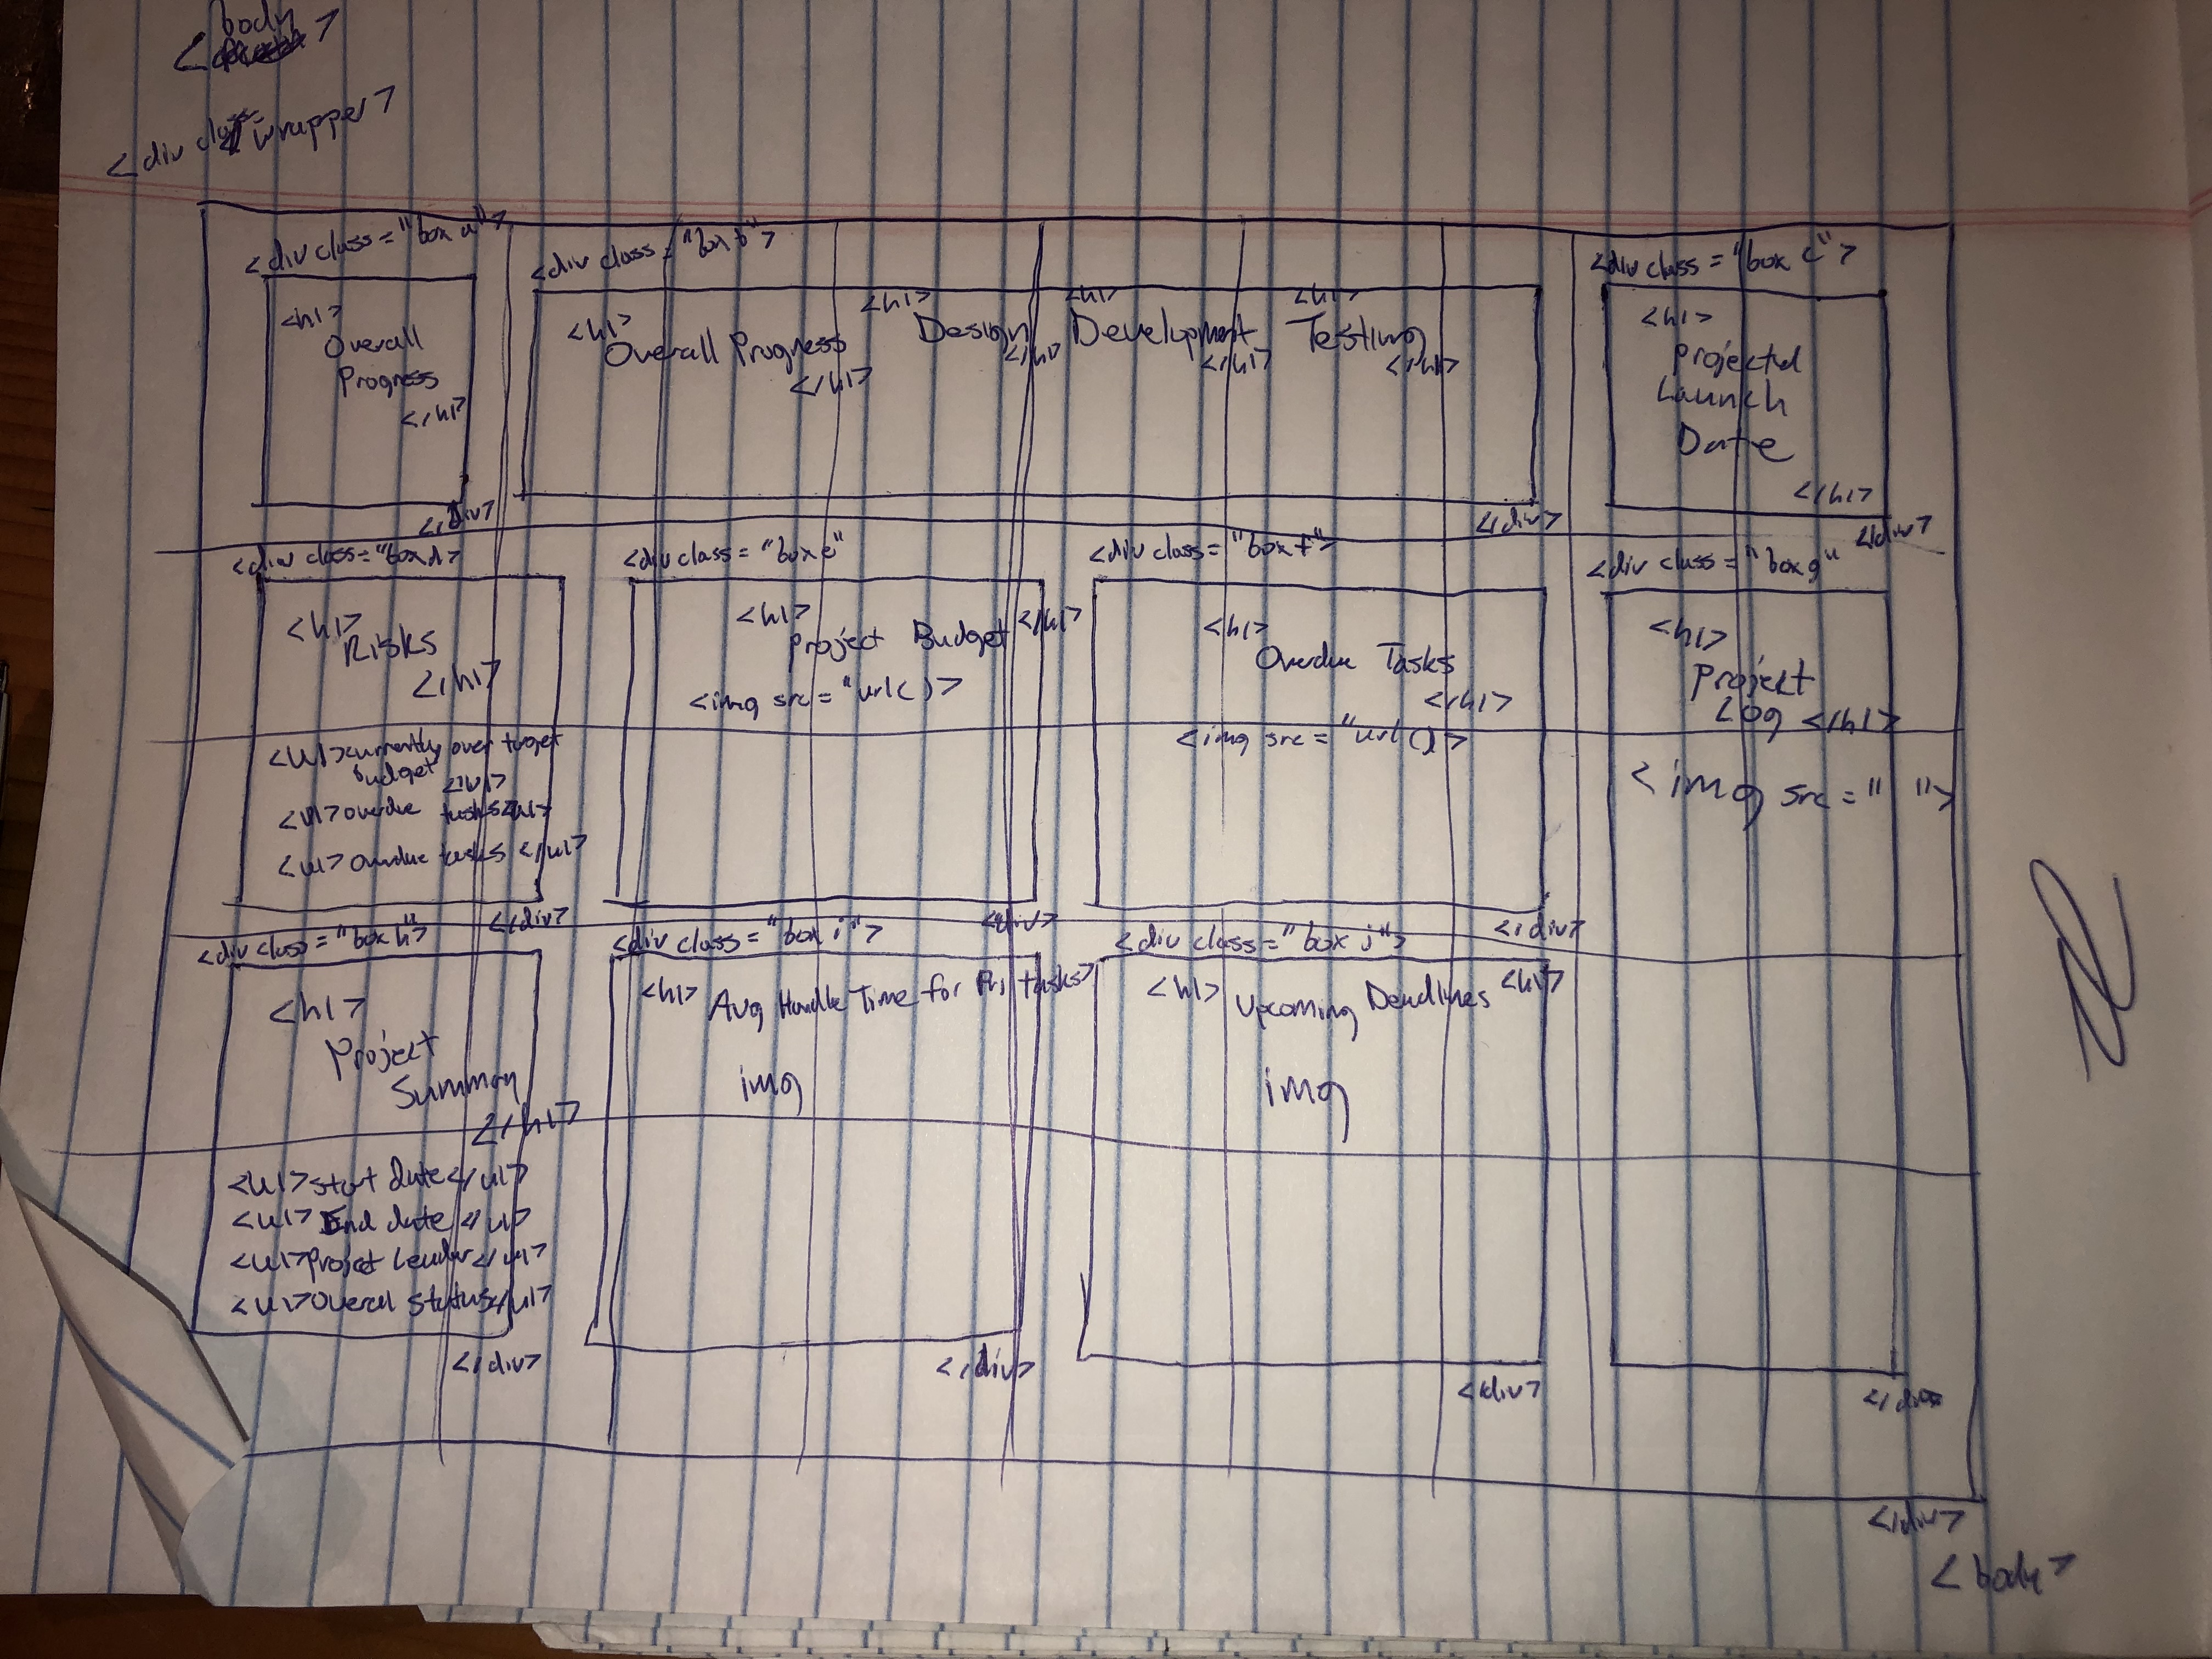 <body>
<div class="wrapper>
<div class = "box a">
<h1>
Overall
Progress
</h1>
</div>
<div class = "box b">
<h1> Overall Progress
</h1>
<h1> Design </h1>
<h1> Development </h1>
<h1> Testing </h1>
</div>
<div class = "box c">
<h1>
Projected
Launch
Date
</h1>
</div>
<div class = "box d>
<h1> Risks </h1>
<ul> currently over target
budget </ul>
<ul> overdue tasks </ul>
<ul> overdue tasks </ul>
</div>
<div class = "box e"
<h1> Project Budget </h1>
<img src = "url()>
</div>
<div class = "box f">
<h1> Overdue Tasks </h1>
<img src = "url()>
</div>
<div class = "box g"
<h1> Project
Log </h1>
<img src = " ">
</div>
<div class = "box h">
<h1> Project
Summary </h1>
<ul> start date </ul>
<ul> End date </ul>
<ul> Project leader </ul>
<ul> overall status </ul>
</div>
<div class = "box i">
<h1> Avg Handle Time for Tasks>
img
</div>
<div class = "box j">
<h1> Upcoming Deadlines <h1>
img
</div>
</div>
<body>